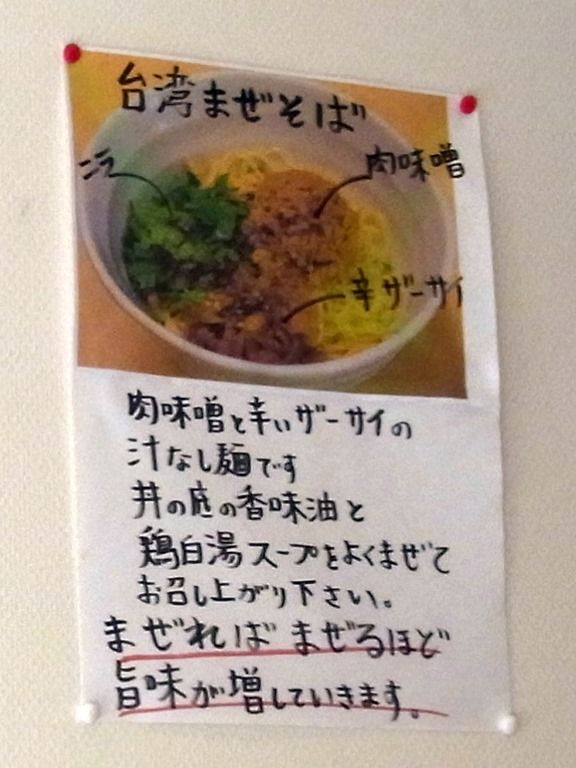 台湾まぜそば
ニラ
肉味噌
辛ザーサイ
肉味噌と辛いザーサイの
汁なし麺です
丼の底の香味油と
鶏白湯スープをよくまぜて
お召し上がり下さい。
まぜればまぜるほど
旨味が増していきます。